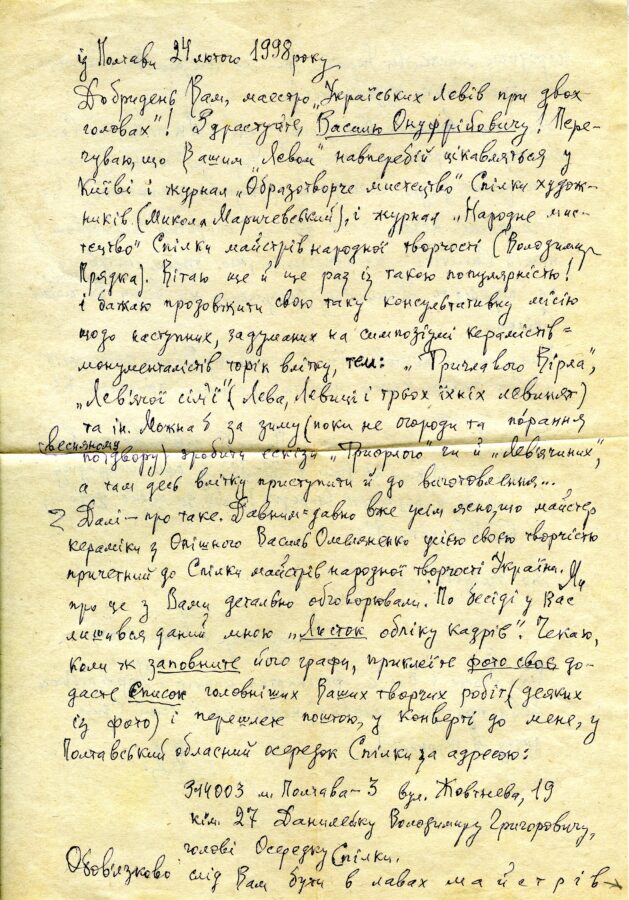 із Полтави 24 лютого 1998 року
Добридень Вам, маестро „Українських Левів при двох
головах"! Здрастуйте, Василю Онуфрійовичу! Пере-
чуваю, що Вашим „Левом" навперебій цікавляться у
Київі і журнал „Образотворче мистецтво" Спілки худож-
ників (Микола Маричевський), і журнал „Народне мис-
тецтво" Спілки майстрів народної творчості (Володимир
Прядка). Вітаю ще й ще раз із такою популярністю!
і бажаю продовжити свою таку консультативну місію
щодо наступних, задуманих на симпозіумі керамістів=
монументалістів торік влітку, тем: „Триглавого Вірла",
„Лев'ячої сім'ї" (Лева, Левиці і трьох їхніх левинят)
та ін. Можна б за зиму (поки не огороди та порання
(весняному
по двору) зробити ескізи „Триорлого" чи й „Лев'ячиних",
а там десь влітку приступити й до виготовлення...
2 Далі – про таке. Давним=давно вже усім ясно, що майстер
кераміки з Опішного Василь Омеляненко усією своєю творчістю
причетний до Спілки майстрів народної творчості України. Ми
про це з Вами детально обговорювали. По бесіді у Вас
лишився даний мною „Листок обліку кадрів". Чекаю,
коли ж заповните його графи, приклеїте фото своє до-
дасте Список головніших Ваших творчих робіт (деяких
із фото) і перешлете поштою, у конверті до мене, у
Полтавський обласний осередок Спілки за адресою:
314003 м. Полтава–3 вул. Жовтнева, 19
кім. 27 Данилейку Володимиру Григоровичу,
голові Осередку Спілки.
Обов'язково слід Вам бути в лавах майстрів→